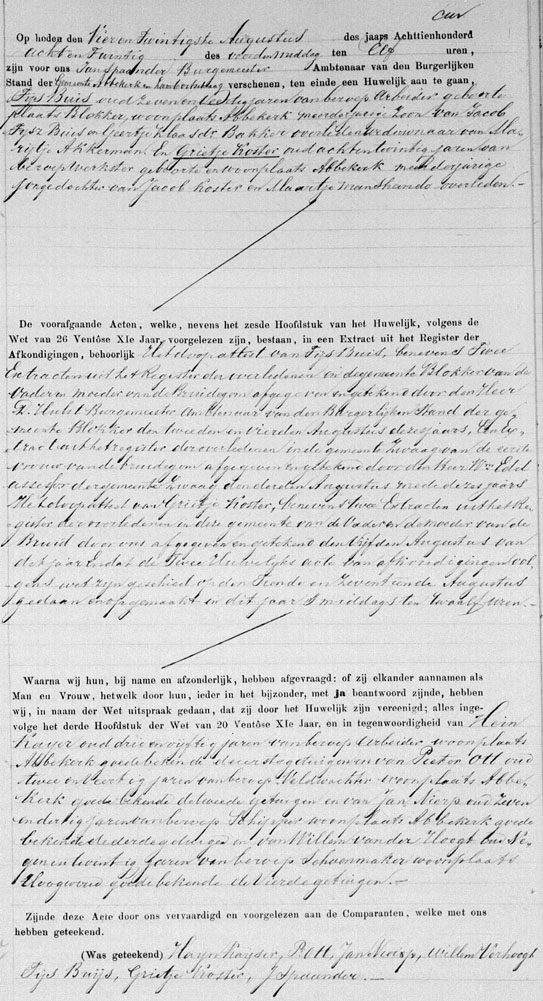 Op heden den Vier en Twintigste Augustus des jaars Achttienhonderd
acht en Twintig des voordenmiddag ten Elf uren,
zijn voor ons Jan Spaander Burgemeester Ambtenaar van den Burgerlijken
Stand der Gemeente Abbekerk en Lambertschaag verschenen, ten einde een Huwelijk aan te gaan,
Tijs Buis oud zeven en dertig jaren van beroep Arbeider geboorte
plaats Blokker, woonplaats Abbekerk meerderjarige Zoon van Jacob
Tysz Buies en Geertje Klaasdr Bakker overleden Weduwnaar van Ma-
rijtje Akkerman. En Grietje Koster oud acht en twintig jaren van
beroep werkster geboorte en woonplaats Abbekerk meerderjarige
dochter van Jacob Koster en Maartje overleden.
De voorafgaande Acten, welke, nevens het zesde Hoofdstuk van het Huwelijk, volgens de
Wet van 26 Ventôse XIe Jaar, voorgelezen zijn, bestaan, in een Extract uit het Register der
Afkondigingen, behoorlijk Het doop attest van Tijs Buis, benevens Twee
Extracten uit het Register der overledenen en de gemeente Blokker van de
Vader en Moeder van de Bruidegom afgegeven en getekend door den Heer
Burgemeester Ambtenaar van den Burgerlijken Stand der ge-
meente Blokker den tweeden en vierden Augustus dezes jaars, Een Ex-
tract uit het register der overledenen in de gemeente Zwaag van de eerste
vrouw van de bruidegom afgegeven en getekend door den Heer Wm Edel
assessor der gemeente Zwaag den derden Augustus mede dezes jaars
Het doop attest van Grietje Koster, benevens twee Extracten uit het Re-
gister der overledenen in deze gemeente van de Vader en de moeder van de
Bruid door ons afgegeven en getekend den Vijfden Augustus van
dit jaar En dat de Twee Huwelijks acte van afkondigingen vol-
gens wet zijn geschied op den Tiende en Zeventiende Augustus
gedaan en opgemaakt in dit jaar s'middags ten twaalf uren.
Waarna wij hun, bij name en afzonderlijk, hebben afgevraagd: of zij elkander aannamen als
Man en Vrouw, hetwelk door hun, ieder in het bijzonder, met ja beantwoord zijnde, hebben
wij, in naam der Wet uitspraak gedaan, dat zij door het Huwelijk zijn vereenigd; alles inge-
volge het derde Hoofdstuk der Wet van 20 Ventôse XIe Jaar, en in tegenwoordigheid van Hein
Kayer oud drie en vijftig jaren van beroep Arbeider woonplaats
Abbekerk goede bekende de eerste getuigen en van Pieter Ott oud
twee en veertig jaren van beroep Veldwachter woonplaats Abbe-
kerk goede bekende de tweede getuigen en van Jan Nierp oud zeven
en dertig jaren van beroep Schipper woonplaats Abbekerk goede
bekende de derde getuigen en van Willem van der Hoogt oud Ne-
gen en twintig jaren van beroep Schoenmaker woonplaats
Hoogwoud goede bekende de Vierde getuigen.
Zijnde deze Acte door ons vervaardigd en voorgelezen aan de Comparanten, welke met ons
hebben geteekend.
(Was geteekend) Hayn Kayser, P. Ott, Jan Nierp, Willem Verhoogt
Tijs Buijs, Grietje Koster, J Spaander.